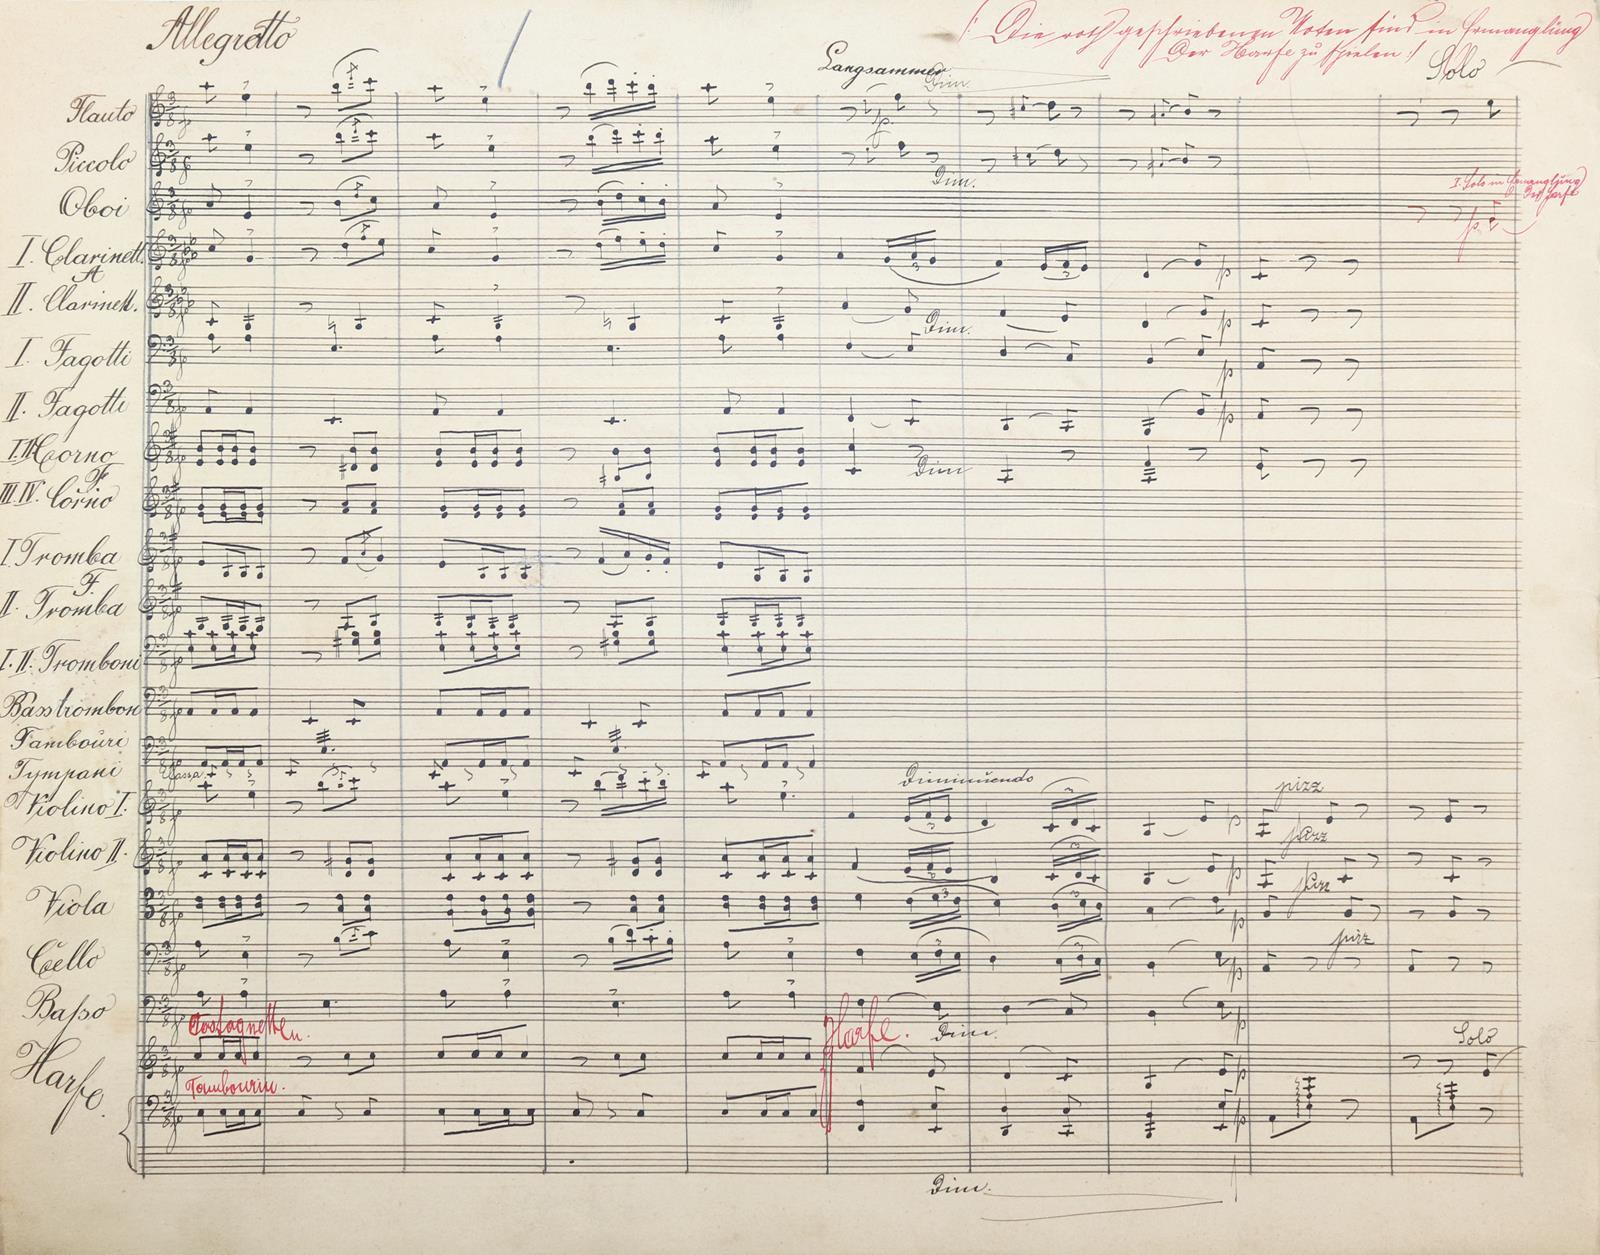 Allegretto
(: Die roth geschriebenen Noten sind in Ermanglung
Der Harfe zu spielen :)
Langsammer
Dim.
Solo
Flauto
p.
Piccolo
Dim.
I. Solo in Ermanglung
der Harfe
Oboi
p
I. Clarinett.
A
p
II. Clarinett.
Dim.
p
I. Fagotti
p
II. Fagotti
p
I.II. Corno
F
Dim
III.IV. Corno
I Tromba
F.
II. Tromba
I. II. Tromboni
Basstrombon
Tambouri
Tympani
Cassa.
Diminuendo
pizz
Violino I.
p
pizz
Violino II.
p
pizz
Viola
p
pizz
Cello
p
Basso
p
Castagnetten.
Harfe.
Dim.
Solo
Harfe.
Tambourin.
p
Dim.